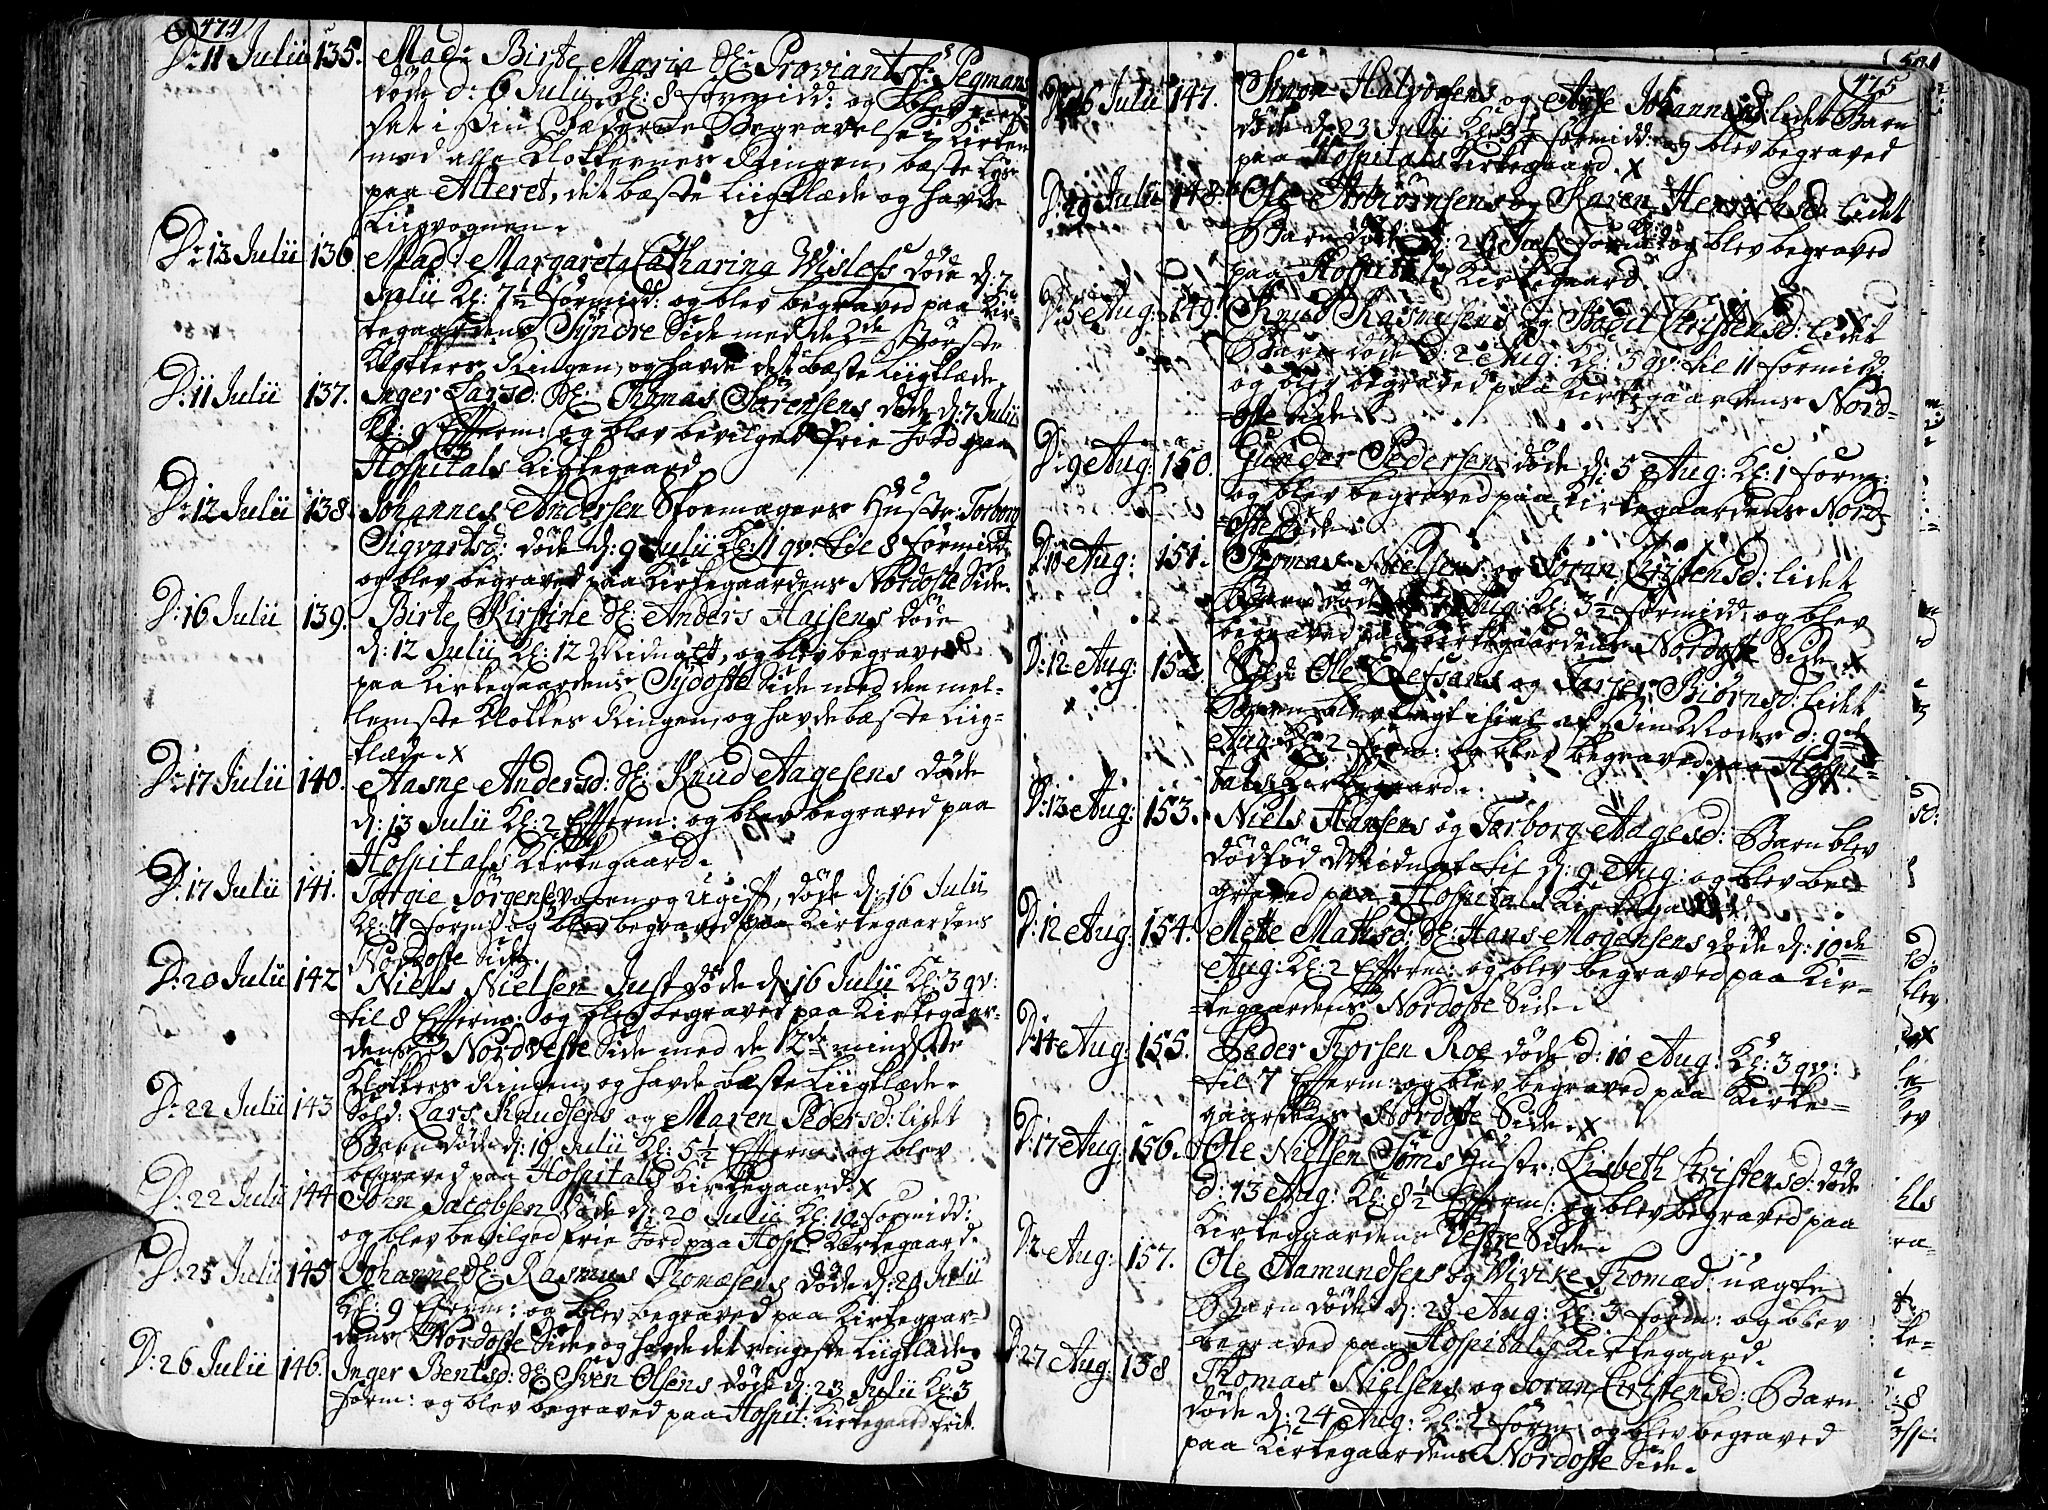 474
D: 11 Julii 135. Mad: Birte Maria Sl: Proviantsf: Pegmans
døde d: 6 Julii Kl: 8 formidd: og blev need
sat i sin Begravelse i Kirken
med alle Klokkernes Ringen, beste Lys
paa Alteret, dit beste Liigklæde og havde
Liigvognen.
D: 13 Julii 136 Mad: Margareta Catharina Wislofs døde d: 7
Julii Kl: 7½ formidd: og blev begraved paa Kir-
kegaardens Syndre Side med de 2de største
Klokkers Ringen, og havde det beste Liigklæde.
D: 11 Julii 137. Inger Larsd: Sl: Thomas Sørensens døde d: 7 Julii
Kl: 9 Efterm: og blev bevilget frie Jord paa
Hospitals Kirkegaard.
D: 12 Julii 138. Johannes Andersen Skomagers Hustr: Torborg
Sigvartsd: døde d: 9 Julii Kl: 1 qv: til 8 formidd:
og blev begraved paa Kirkegaardens Nordoste Side.
D: 16 Julii 139. Birte Kirstine Sl: Anders Hajsens døde
d: 12 Julii Kl: 12 Midnat, og blev begraved
paa Kirkegaardens Sydoste Side med den mel-
lemste Klokkes Ringen, og havde beste Liig-
klæde. X
D: 17 Julii 140. Aasne Andersd: Sl: Knud Aagesens døde
d: 13 Julii Kl: 2 Efterm: og blev begraved paa
Hospitals Kirkegaard.
D: 17 Julii 141. Torgie Jørgens voxen og Ugift, døde d: 16 Julii
Kl: 4 form: og blev begraved paa Kirkegaardens
Nordoste Side.
D: 20 Julii 142 Niels Nielsen Just døde d: 16 Julii Kl: 3 qv:
til 8 Efterm: og blev begraved paa Kirkegaar-
dens Nordveste Side med de 12de mindste
Klokkers Ringen, og havde beste Liigklæde.
D: 22 Julii 143 Sold: Lars Knudsens og Maren Pedersd: lidet
Barn døde d: 19 Julii Kl: 5½ Efterm: og blev
begraved paa Hospitals Kirkegaard. X
D: 22 Julii 144 Søren Jacobsen døde d: 20 Julii Kl: 10 formidd:
og blev bevilged frie Jord paa Hosp: Kirkegaard.
D: 25 Julii 145 Johanne Sl: Rasmus Thomæsens døde d: 21 Julii
Kl: 9 Efterm: og blev begraved paa Kirkegaar-
dens Nordoste Side og havde det ringeste Liigklæde.
D: 26 Julii 146. Inger Bentsd: Sl: Sven Olsens døde d: 23 Julii Kl: 3
form: og blev begraved paa Hospit: Kirkegaard frit.
475
D: 26 Julii 147. Simon Halvorsens og Aase Johannesd: lidet Barn
døde d: 23 Julii Kl: 3½ formidd: og blev begraved
paa Hospitals Kirkegaard. X
D: 29 Julii 148. Ole Asbiørnsens og Karen Henrichsd: lidet
Barn døde d: 26 Jul: form: og blev begraved
paa Hospitals Kirkegaard.
D: 5 Aug: 149. Knud Rasmusens og Bodil Christensd: lidet
Barn døde d: 2 Aug: Kl: 3 qv: til 11 formidd:
og blev begraved paa Kirkegaardens Nord-
oste Side.
D: 9 Aug: 150. Gunder Pedersen døde d: 5 Aug: Kl: 1 form:
og blev begraved paa Kirkegaardens Nord-
oste Side.
D: 10 Aug: 151. Thomas Nielsens og Joran Christensd: lidet
Barn døde d: 7 Aug: Kl: 3½ formidd: og blev
begraved paa Kirkegaardens Nordoste Side. X
D: 12 Aug: 152 Sold: Ole Elefsens og Torger Biørnsd: lidet
Barn blev lagt ihiel af sin Moder d: 9de
Aug: Kl: 2 form: og blev begraved paa Hospi-
tals Kirkegaard.
D: 13 Aug: 153. Niels Hansens og Torborg Aagesd: Barn blev
dødfød Midnat til d: 9 Aug: og blev be-
graved paa Hospitals Kirkegaard.
D: 12 Aug: 154. Mette Mathsd: Sl: Hans Mogensens døde d: 10de
Aug: Kl: 2 Efterm: og blev begraved paa Kir-
kegaardens Nordoste Side.
D: 14 Aug: 155. Peder Thorsen Roe døde d: 10 Aug: Kl: 3 qv:
til 7 Efterm: og blev begraved paa Kirke-
gaardens Nordoste Side. X
D: 17 Aug: 156. Ole Nielsen Toms Hustr: Lisbeth Christensd: døde
d: 13 Aug: Kl: 8½ Efterm: og blev begraved paa
Kirkegaardens Vestre Side.
Aug: 157. Ole Aamundsens og Wivike Thomæd: uægte
Barn døde d: 23 Aug: Kl: 3 form: og blev
begraved paa Hospitals Kirkegaard.
D: 27 Aug: 158 Thomas Nielsens og Joran Christensd: Barn
døde d: 24 Aug: Kl: 2 form: og blev begraved
paa Kirkegaardens Nordoste Side.